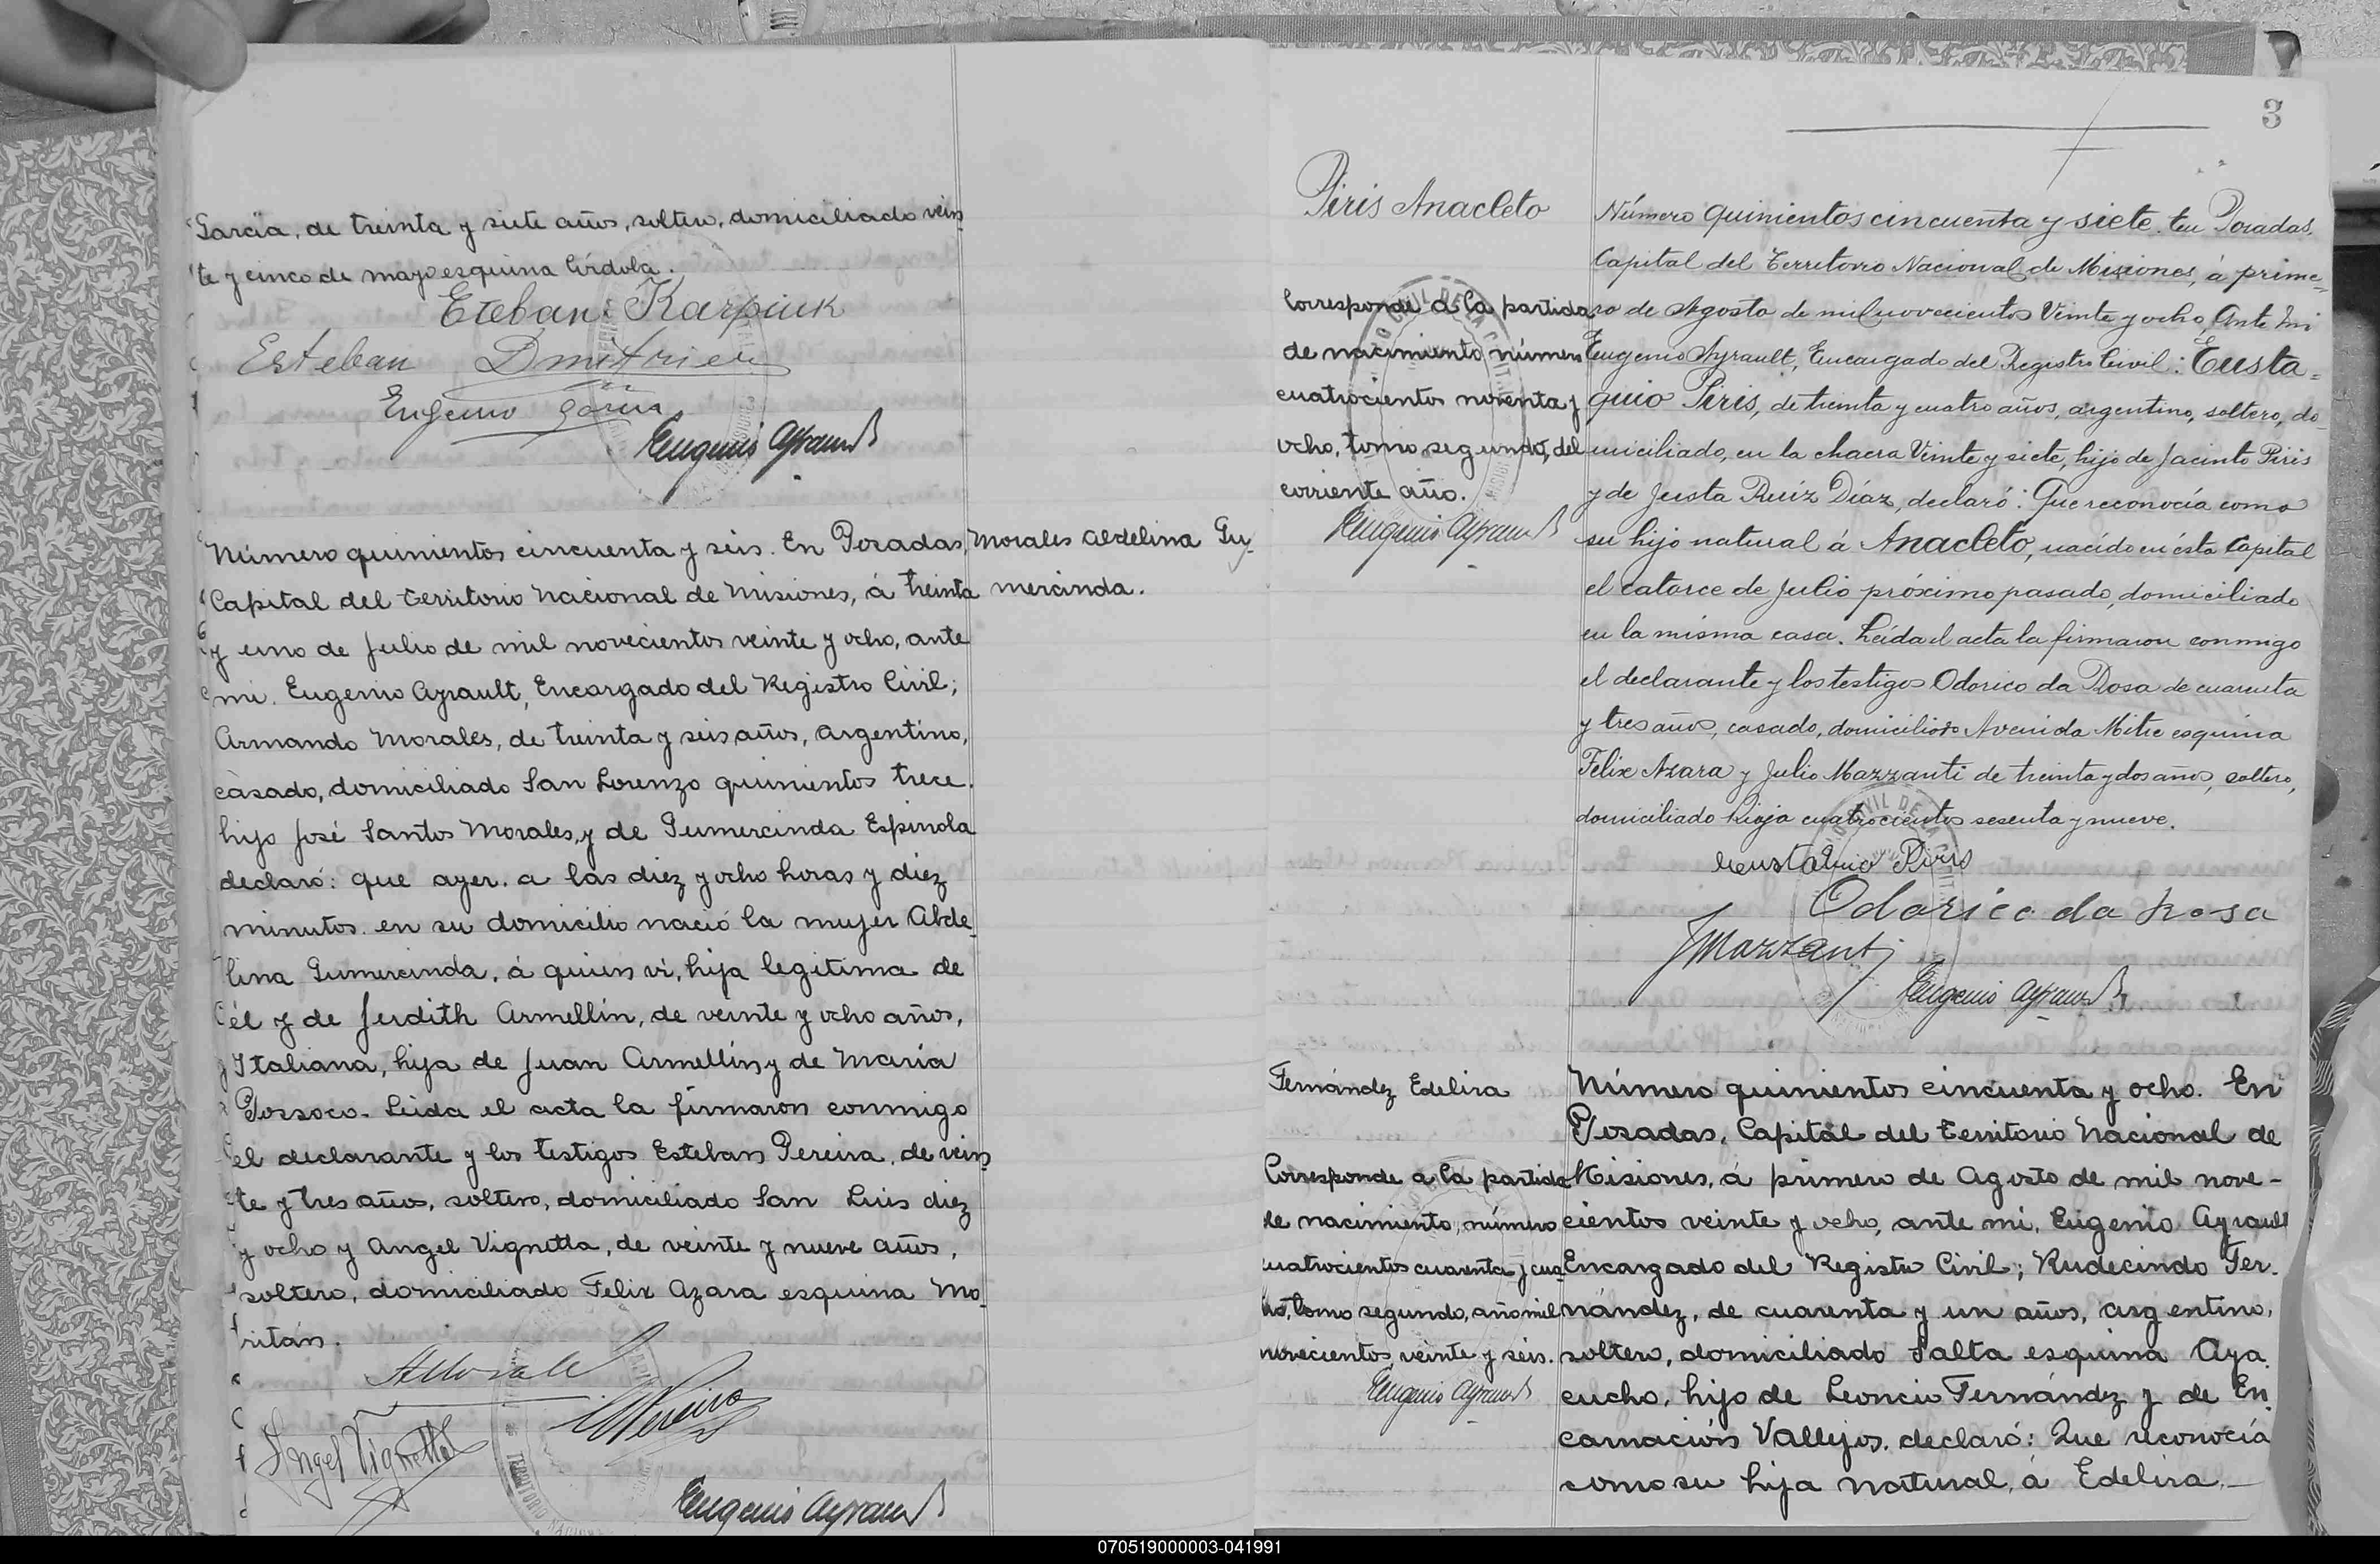 García, de treinta y siete años, soltero, domiciliado vein
te y cinco de mayo esquina Córdoba.
Esteban Karpiuk
Esteban Dmitriev
Eugenio García
Eugenio Ayrault
Número quinientos cincuenta y seis. En Posadas,
Capital del Territorio Nacional de Misiones, á treinta
y uno de Julio de mil novecientos veinte y ocho, ante
mi. Eugenio Ayrault, Encargado del Registro Civil;
Armando Morales, de treinta y seis años, Argentino,
casado, domiciliado San Lorenzo quinientos trece.
hijo José Santos Morales, y de Gumercinda Espinola
declaró: que ayer. a las diez y ocho horas y diez
minutos. en su domicilio nació la mujer Alde_
lina Gumercinda, á quien vi, hija legitima de
él y de Judith Armellin, de veinte y ocho años,
Italiana, hija de Juan Armellin y de Maria
Possoco. Leida el acta la firmaron conmigo
el declarante y los testigos Esteban Pereira, de vein
te y tres años, soltero, domiciliado San Luis diez
y ocho y Angel Vignolla, de veinte y nueve años,
soltero, domiciliado Felix Azara esquina Mo_
ritán.
AMorales
EPereira
Angel Vignolla
Eugenio Ayrault
Morales Aldelina Gu_
mercinda.
3
Piris Anacleto
Corresponde á la partida
de nacimiento número
cuatrocientos noventa y
ocho, tomo segundo, del
corriente año.
Eugenio Ayrault
Número quinientos cincuenta y siete. En Posadas,
Capital del Territorio Nacional de Misiones, á prime=
ro de Agosto de mil novecientos Veinte y ocho, Ante mi
Eugenio Ayrault, Encargado del Registro Civil: Eusta=
quio Piris, de treinta y cuatro años, argentino, soltero, do_
miciliado, en la chacra Veinte y siete, hijo de Jacinto Piris
y de Justa Ruíz Díaz, declaró: Que reconocía como
su hijo natural á Anacleto, nacido en ésta Capital
el catorce de Julio próximo pasado, domiciliado
en la misma casa. Leída el acta la firmaron conmigo
el declarante y los testigos Odorico da Rosa de cuarenta
y tres años, casado, domicilioto Avenida Mitre esquina
Felix Azara y Julio Mazzanti de treinta y dos años, soltero,
domiciliado Rioja cuatrocientos sesenta y nueve.
Eustaquio Piris
Odorico da Rosa
JMazzanti
Eugenio Ayrault
Fernández Edelira
Corresponde a la partida
de nacimiento, número
cuatrocientos cuarenta y cua
tro, tomo segundo, año mil
novecientos veinte y seis.
Eugenio Ayrault
Número quinientos cincuenta y ocho. En
Posadas, Capital del Territorio Nacional de
Misiones, á primero de Agosto de mil nove-
cientos veinte y ocho, ante mi. Eugenio Ayrault
Encargado del Registro Civil; Rudecindo Fer.
nández, de cuarenta y un años, argentino,
soltero, domiciliado Salta esquina Aya.
cucho, hijo de Leoncio Fernández y de En
carnación Vallejos. declaró: Que reconocía
como su hija natural, á Edelira.
070519000003-041991